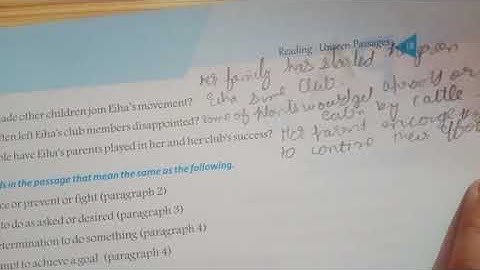 Reading : Unseen Passages 18
her family has started to grow
ade other children join Eiha's movement? Eiha Club.
ten left Eiha's club members disappointed? some of plants would get or
eaten by cattle
ole have Eiha's parents played in her and her club's success? Her parent encourge
to contine their
ds in the passage that mean the same as the following.
ce or prevent or fight (paragraph 2)
to do as asked or desired (paragraph 3)
etermination to do something (paragraph 4)
mpt to achieve a goal (paragraph 4)